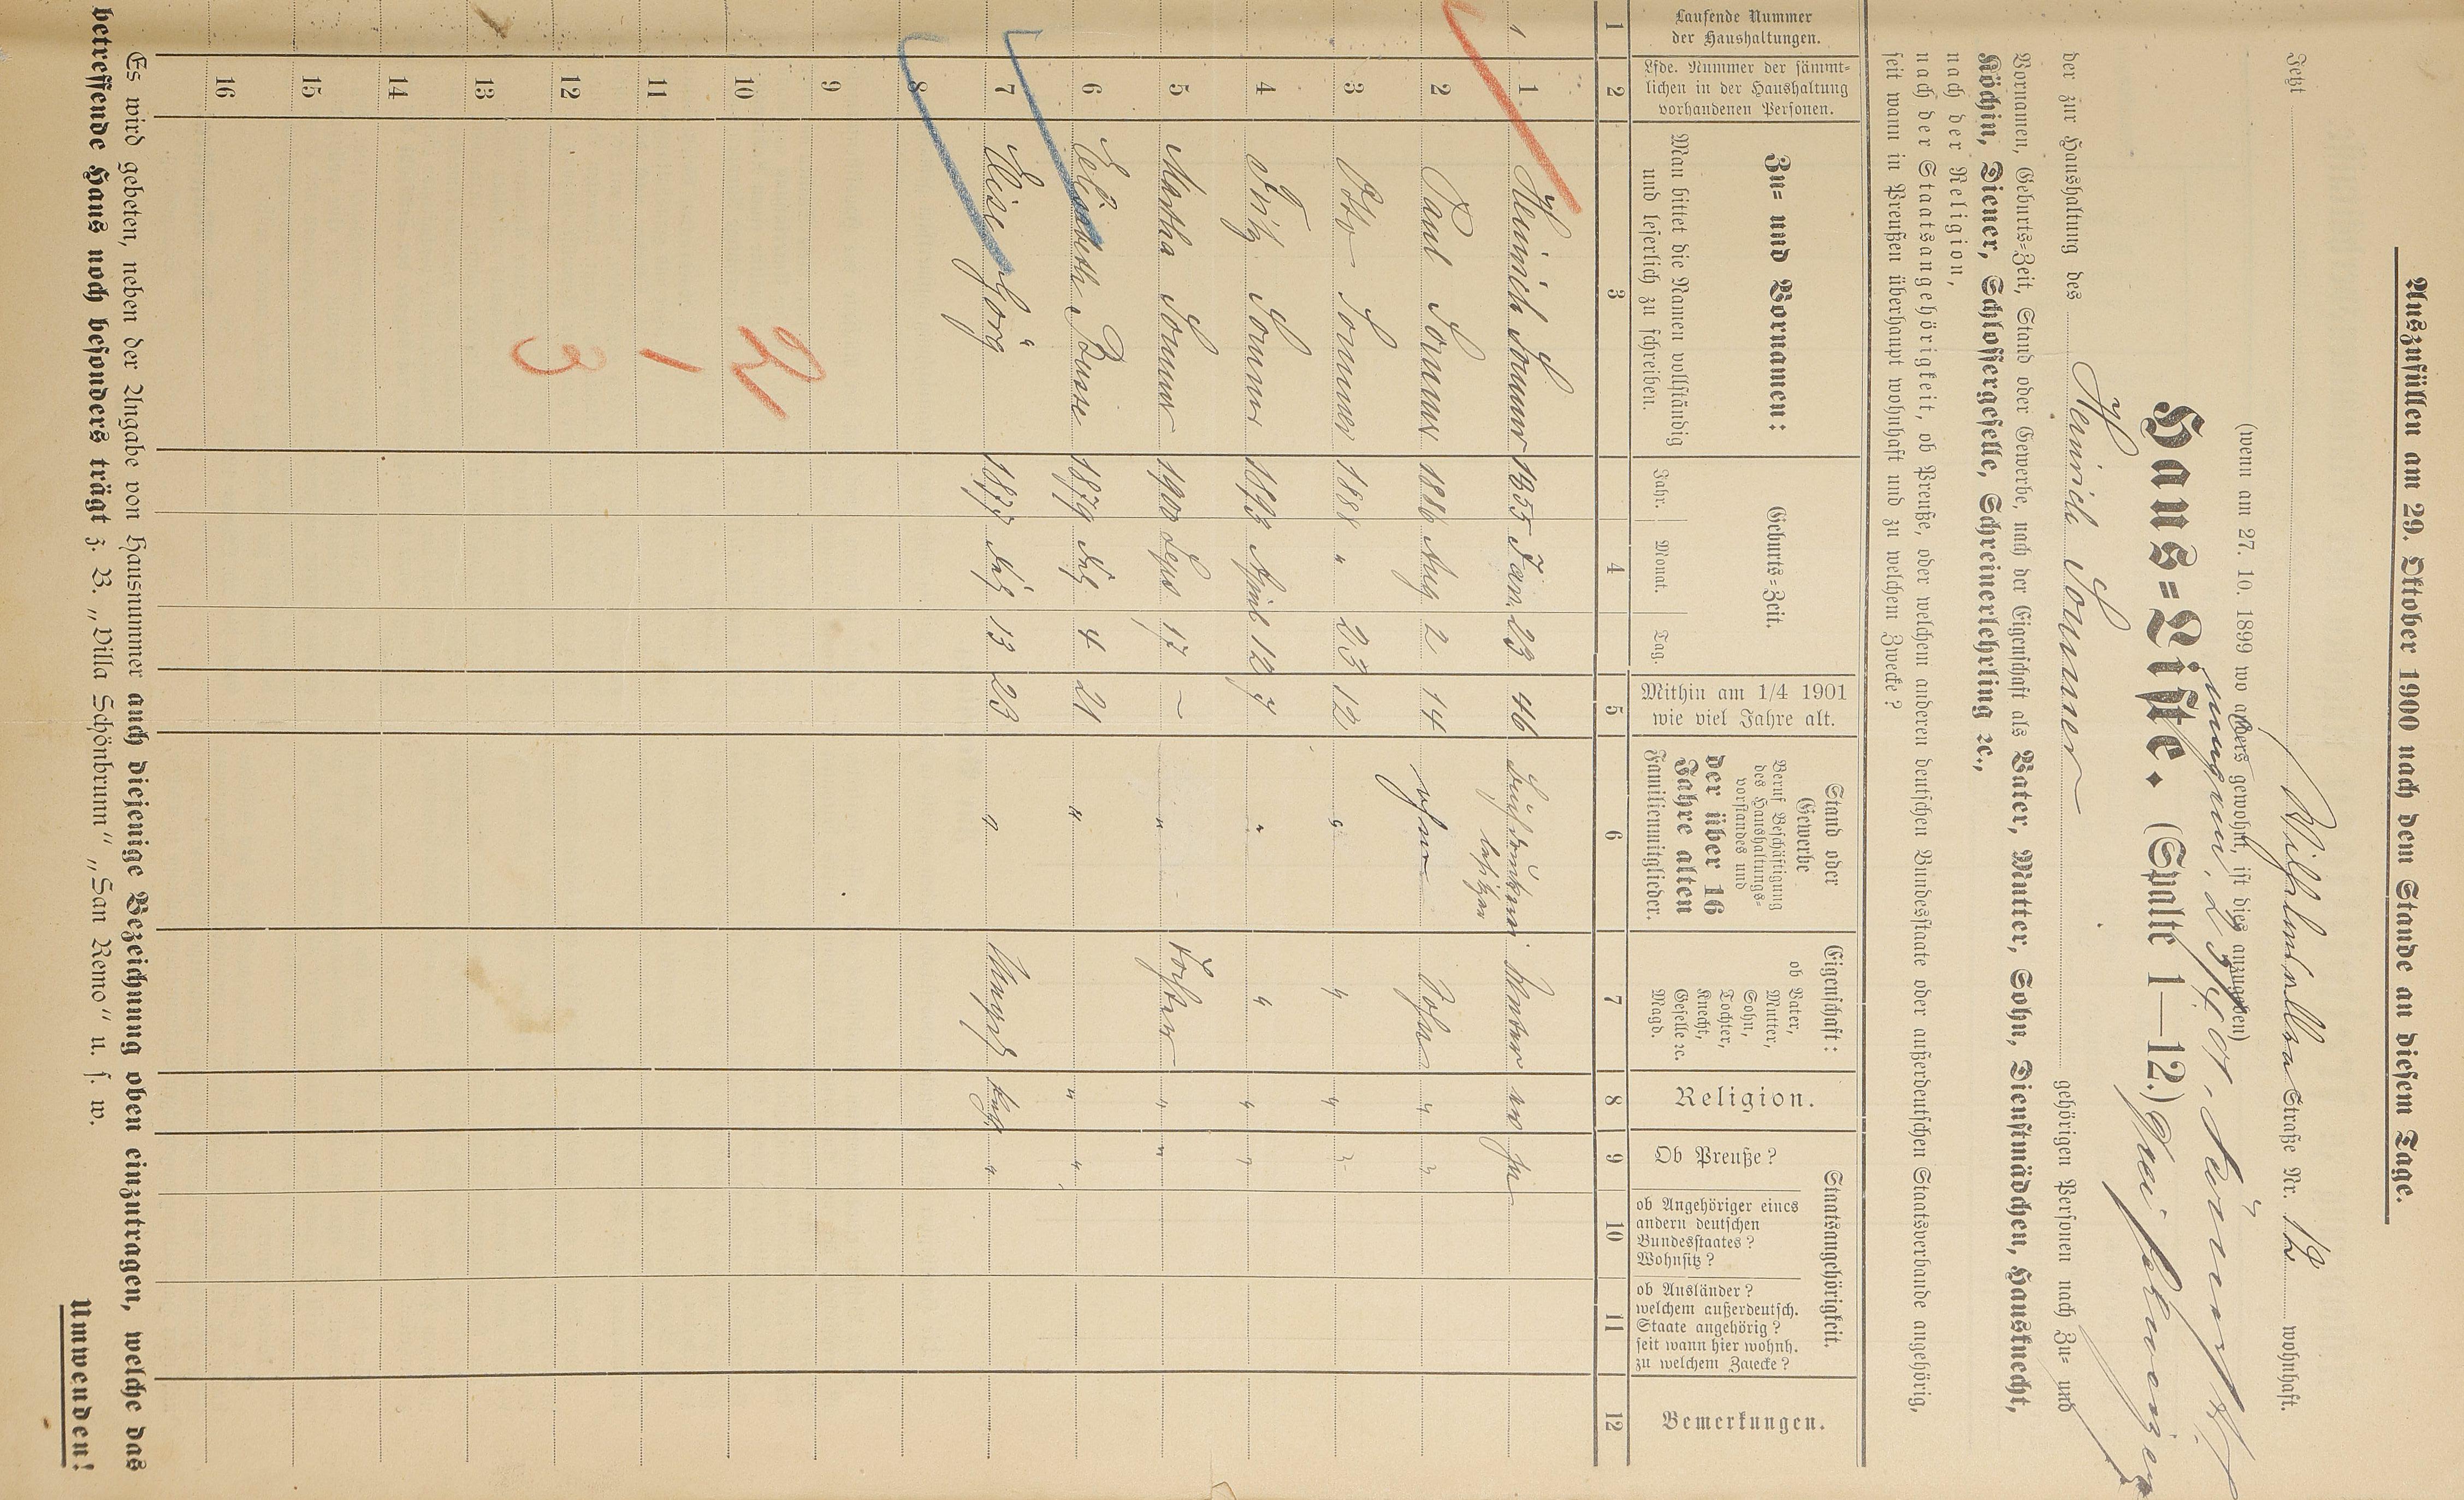 Auszufüllen am 29. Oktober 1900 nach dem Stande an diesem Tage.
Jetzt Wilhelmsallee Straße Nr. 12 wohnhaft.
(wenn am 27. 10. 1899 wo anders gewohnt, ist dies anzugeben)
Haus=Liste. (Spalte 1—12.)
der zur Haushaltung des Heinrich Sommer gehörigen Personen nach Zu= und
Vornamen, Geburts=Zeit, Stand oder Gewerbe, nach der Eigenschaft als Vater, Mutter, Sohn, Dienstmädchen, Hausknecht,
Köchin, Diener, Schlossergeselle, Schreinerlehrling ꝛc.,
nach der Religion,
nach der Staatsangehörigkeit, ob Preuße, oder welchem anderen deutschen Bundesstaate oder außerdeutschen Staatsverbande angehörig,
seit wann in Preußen überhaupt wohnhaft und zu welchem Zwecke?
Laufende Nummer der Haushaltungen.
Lfde. Nummer der sämmt=
lichen in der Haushaltung
vorhandenen Personen.
Zu= und Vornamen:
Man bittet die Namen vollständig
und leserlich zu schreiben.
Geburts=Zeit.
Jahr. Monat. Tag.
Mithin am 1/4 1901
wie viel Jahre alt.
Stand oder
Gewerbe
Beruf Beschäftigung
des Haushaltungs=
vorstandes und
der über 16
Jahre alten
Familienmitglieder.
Eigenschaft:
ob Vater,
Mutter,
Sohn,
Tochter,
Knecht,
Geselle ꝛc.
Magd.
Religion.
Staatsangehörigkeit.
Ob Preuße?
ob Angehöriger eines
andern deutschen
Bundesstaates?
Wohnsitz?
ob Ausländer?
welchem außerdeutsch.
Staate angehörig?
seit wann hier wohnh.
zu welchem Zwecke?
Bemerkungen.
1 2 3 4 5 6 7 8 9 10 11 12
1 1 Heinrich Sommer 1855 Jan. 23 46 Vater ev ja
2 Paul Sommer 1886 Aug 2 14 ohne Sohn " "
3 Otto Sommer 1888 " 23 12 " " " "
4 Fritz Sommer 1893 April 12 7 " " " "
5 Martha Sommer 1900 Sept 17 – " Tochter " "
6 Elisabeth Busse 1879 4 21 " " "
7 Elise Görg 1877 13 23 " kath "
8
9
10
11
12
13
14
15
16
1
3
Es wird gebeten, neben der Angabe von Hausnummer auch diejenige Bezeichnung oben einzutragen, welche das
betreffende Haus noch besonders trägt z. B. „Villa Schönbrunn" „San Remo" u. s. w.
Umwenden!